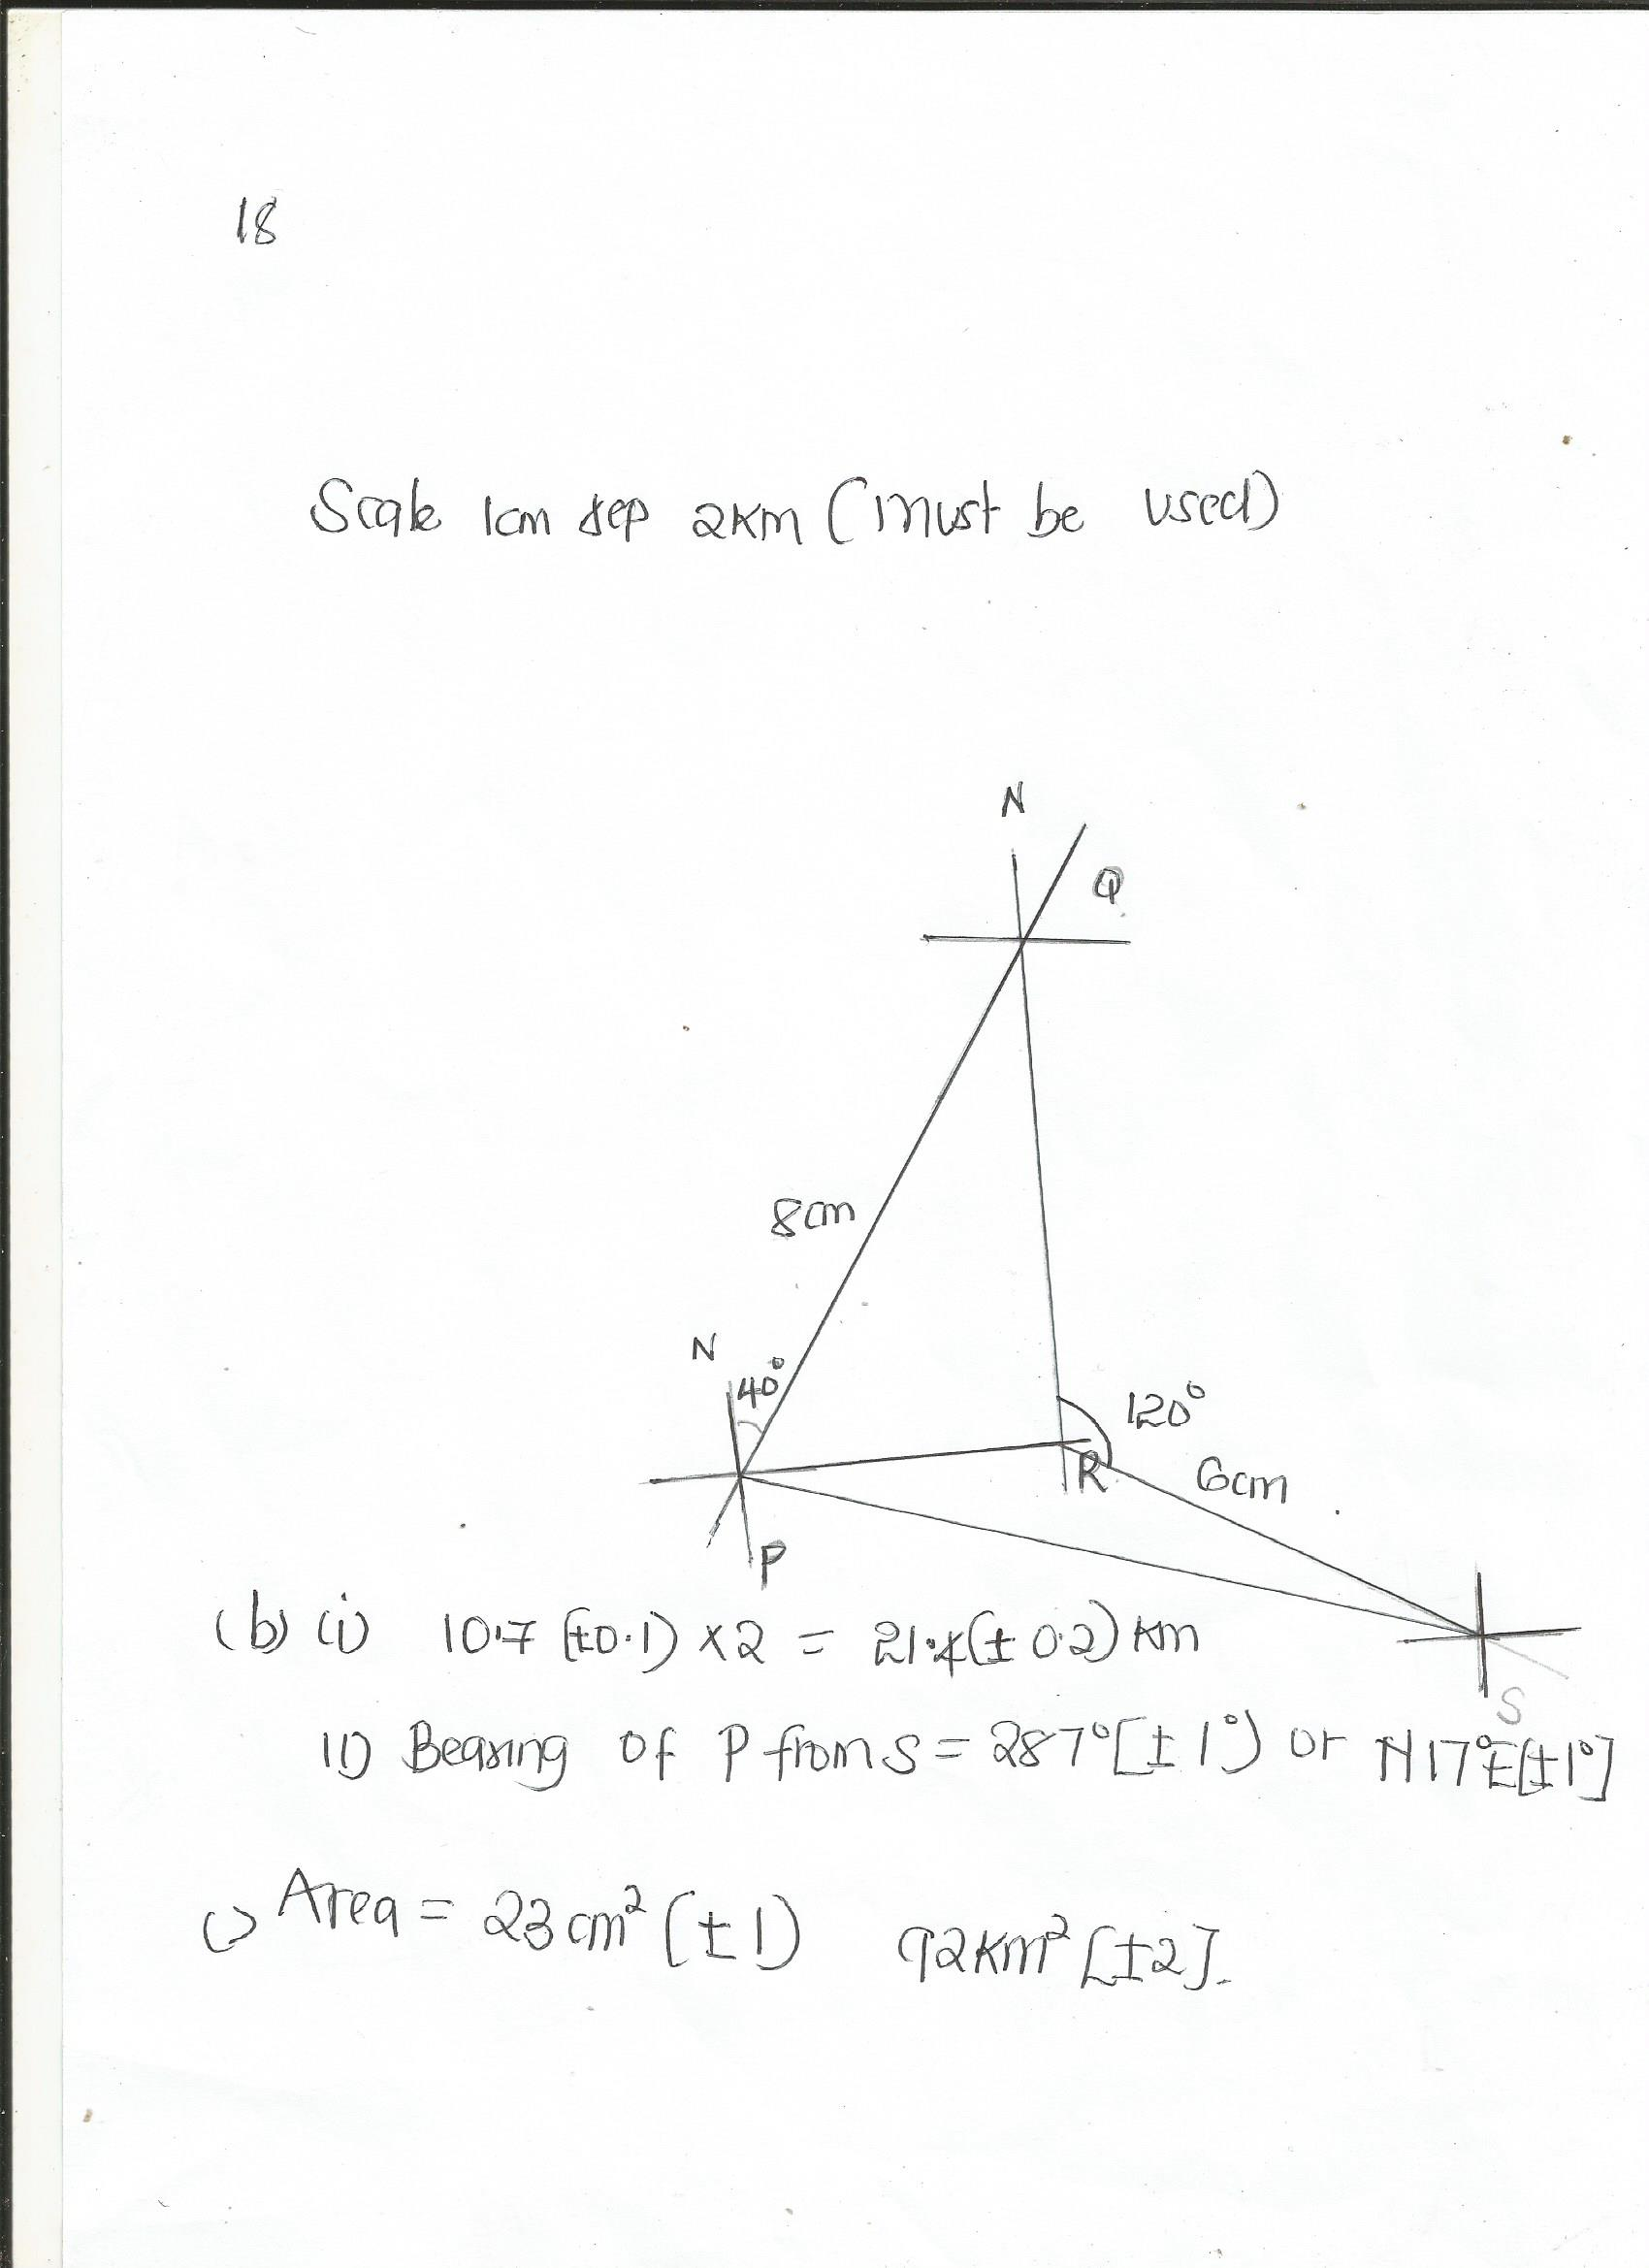 18
Scale 1cm rep 2km (must be used)
N
Q
8cm
N
40°
120°
R
6cm
P
(b) (i) 10.7 (±0.1) x 2 = 21.4(± 0.2) km
S
ii) Bearing of P from S = 287° [± 1°) or N17°E[±1°]
c) Area = 23 cm² (± 1) 92km² [±2].